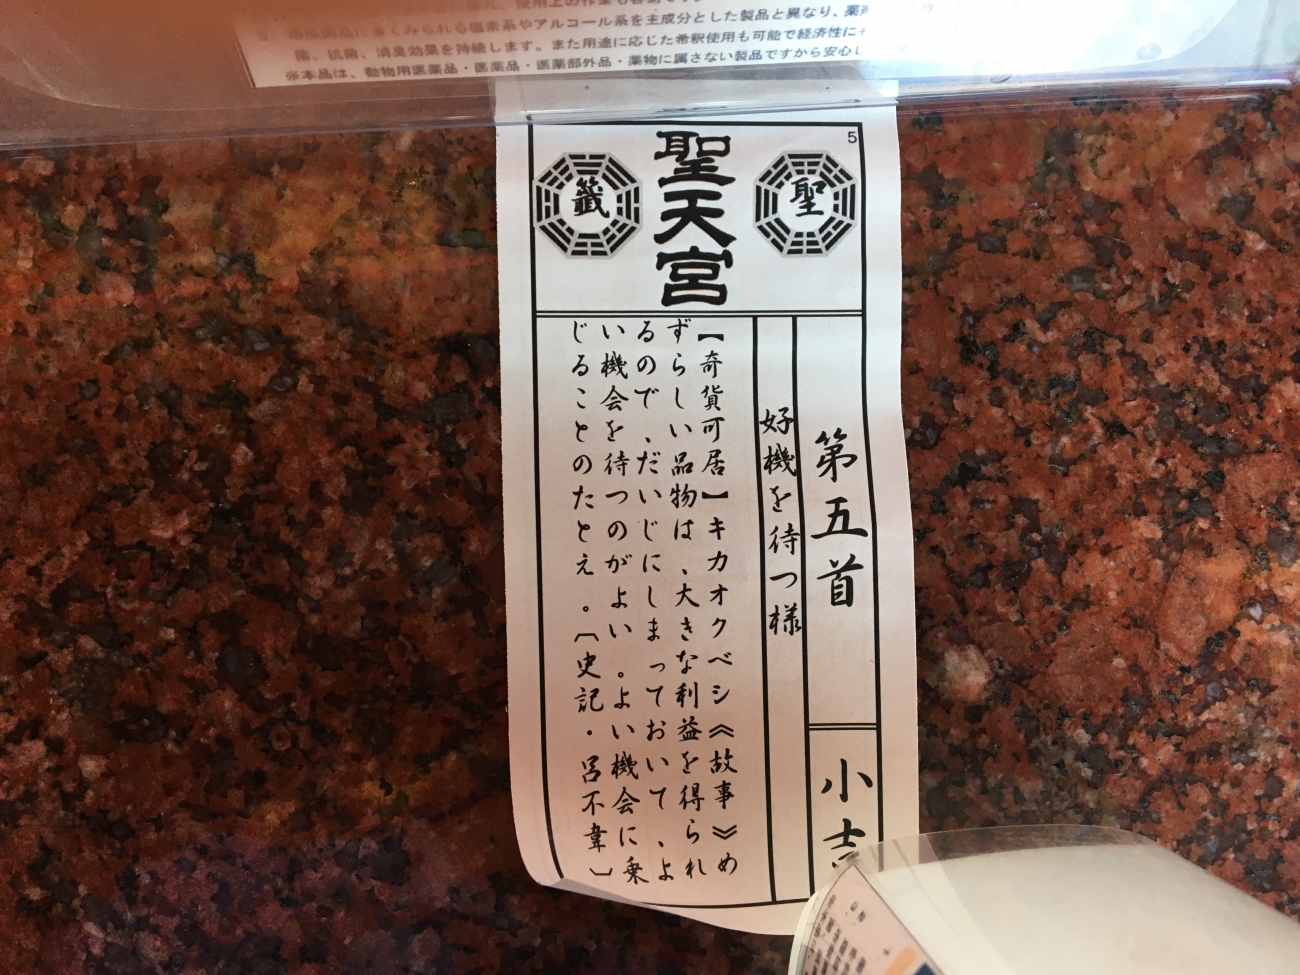 市販商品に多くみられる塩素系やアルコール系を主成分とした製品と異なり、薬
菌、抗菌、消臭効果を持続します。また用途に応じた希釈使用も可能で経済性に
※本品は、動物用医薬品・医薬品・医薬部外品・薬物に属さない製品ですから安心し
5
聖
聖天宮
籤
第五首
小吉
好機を待つ様
【奇貨可居】キカオクベシ《故事》め
ずらしい品物は、大きな利益を得られ
るので、だいじにしまっておいて、よ
い機会を待つのがよい。よい機会に乗
じることのたとえ。〔史記・呂不韋〕